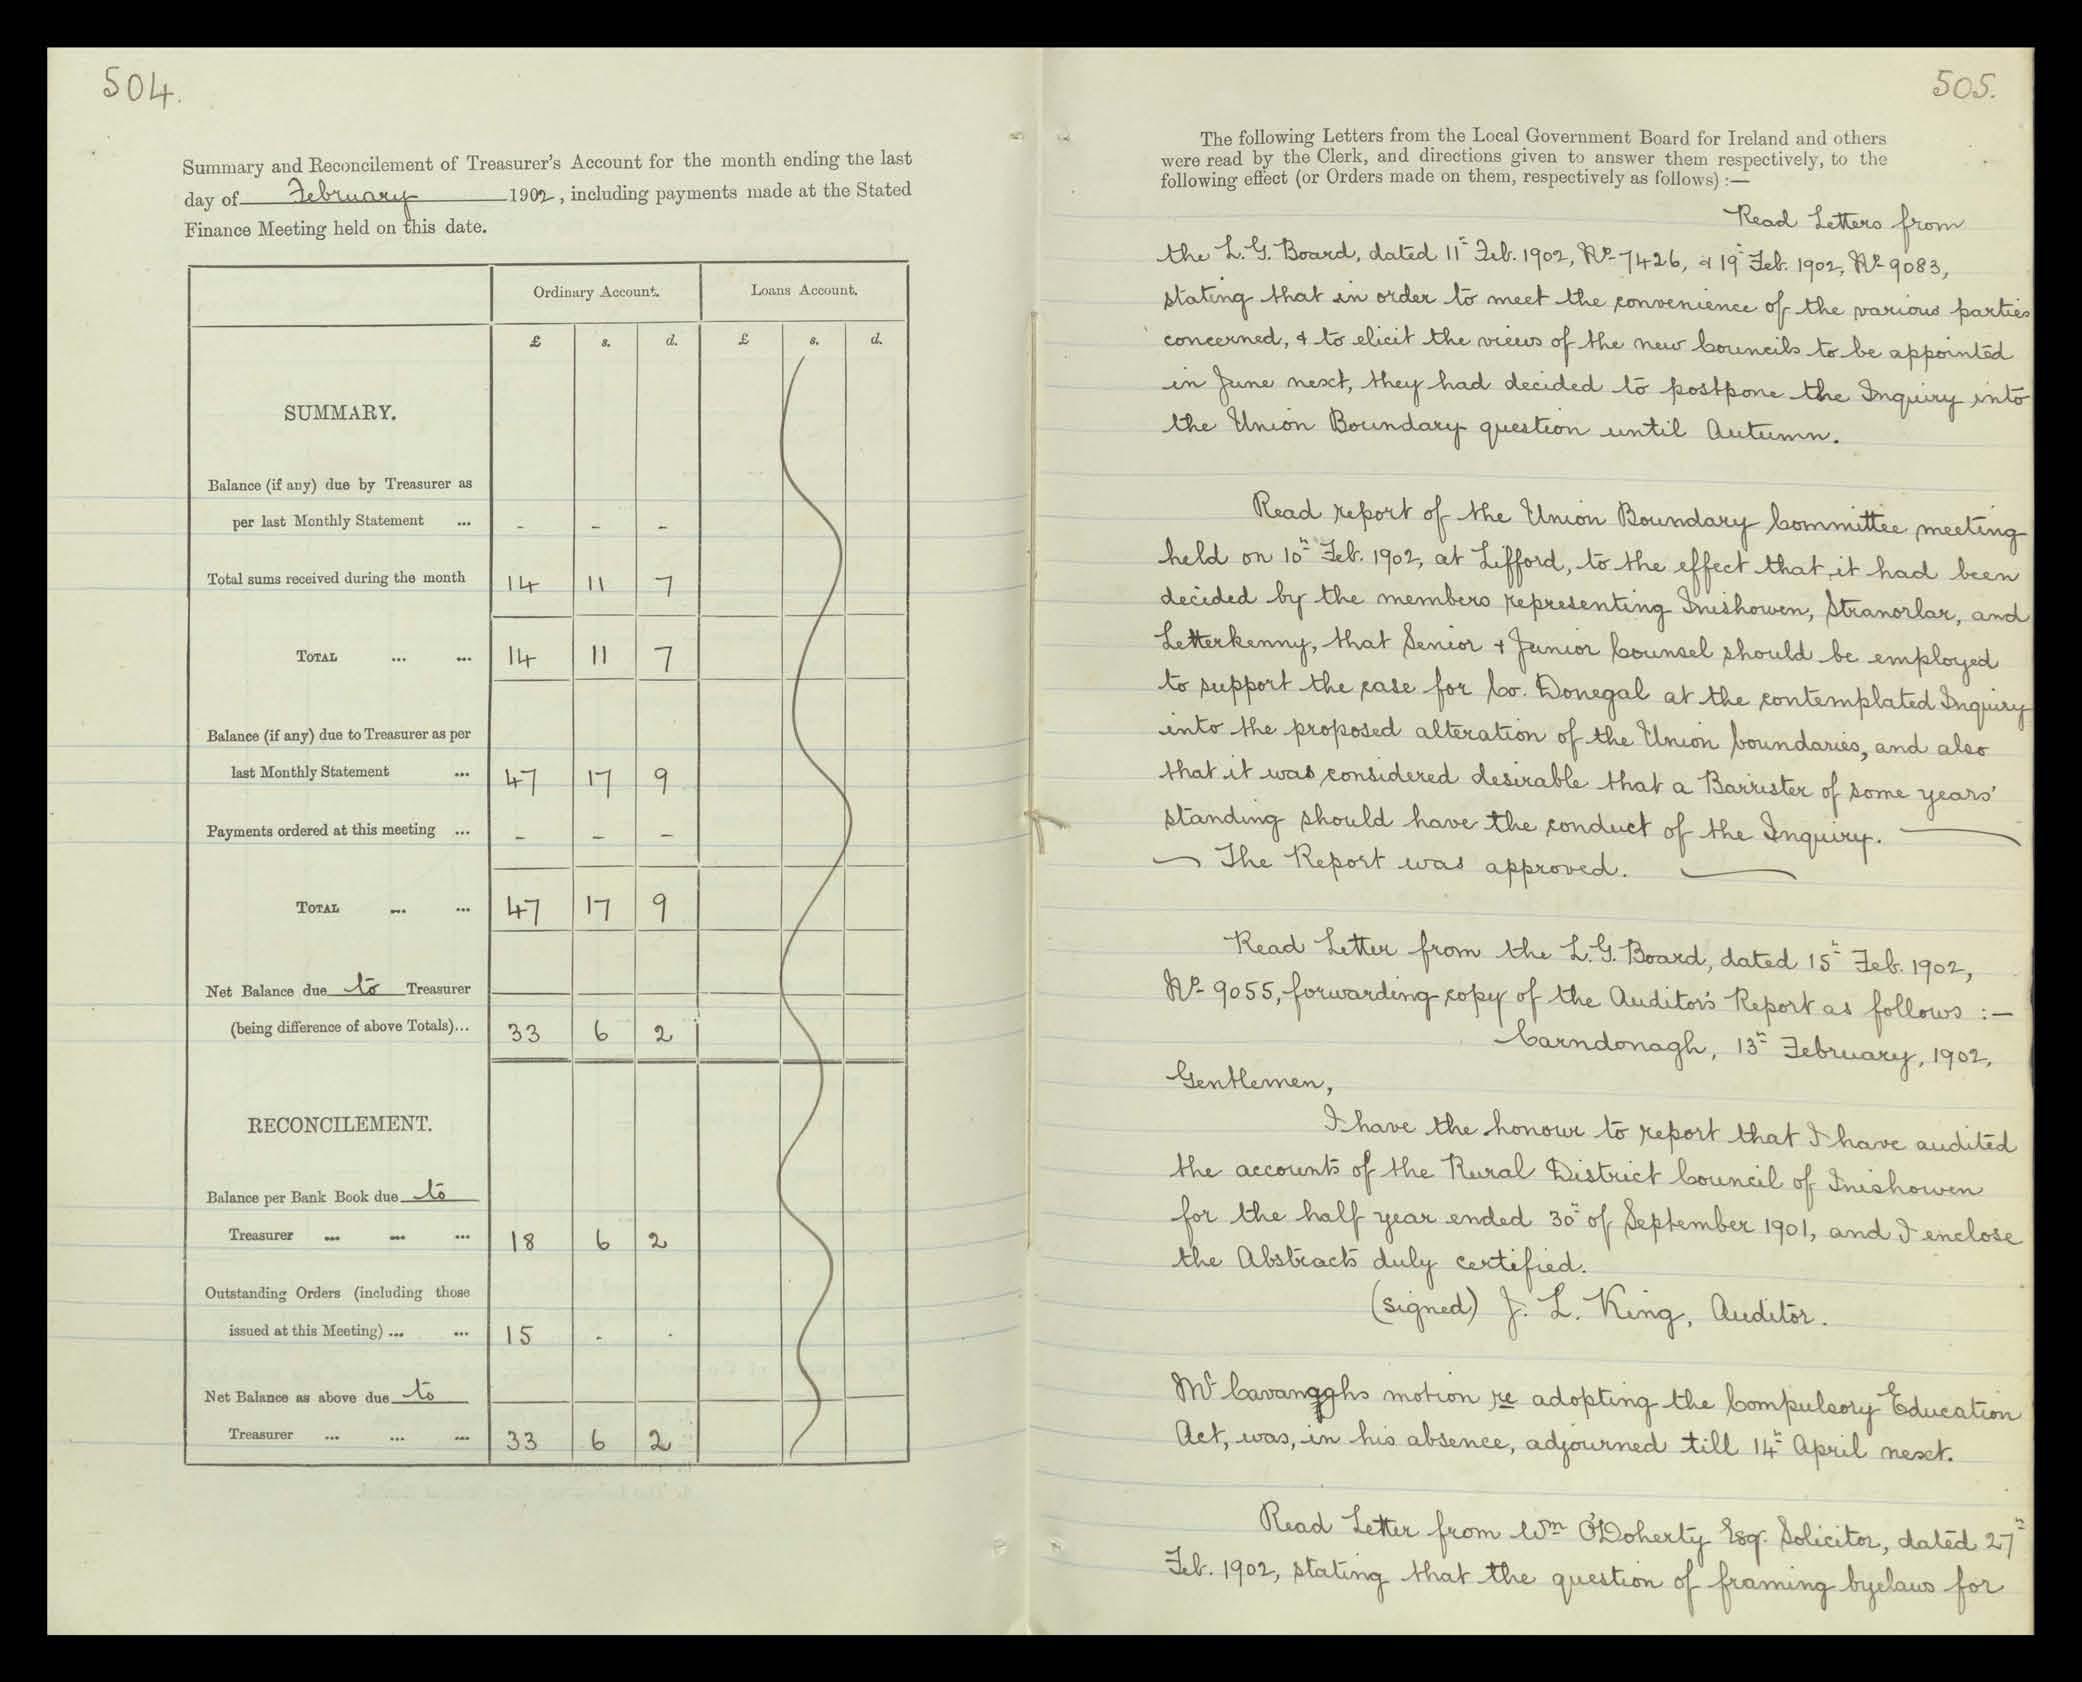 504.
Summary and Reconcilement of Treasurer's Account for the month ending the last
day of February 1902, including payments made at the Stated
Finance Meeting held on this date.
Ordinary Account. Loans Account.
£ s. d. £ s. d.
SUMMARY.
Balance (if any) due by Treasurer as
per last Monthly Statement ... - - -
Total sums received during the month 14 11 7
TOTAL ... ... 14 11 7
Balance (if any) due to Treasurer as per
last Monthly Statement ... 47 17 9
Payments ordered at this meeting ... - - -
TOTAL ... ... 47 17 9
Net Balance due to Treasurer
(being difference of above Totals)... 33 6 2
RECONCILEMENT.
Balance per Bank Book due to
Treasurer ... ... ... 18 6 2
Outstanding Orders (including those
issued at this Meeting) ... ... 15 - -
Net Balance as above due to
Treasurer ... ... ... 33 6 2
505.
The following Letters from the Local Government Board for Ireland and others
were read by the Clerk, and directions given to answer them respectively, to the
following effect (or Orders made on them, respectively as follows) :—
Read Letters from
the L.G. Board, dated 11th Feb. 1902, No 7426, & 19th Feb. 1902, No 9083,
stating that in order to meet the convenience of the various parties
concerned, & to elicit the views of the new Councils to be appointed
in June next, they had decided to postpone the Inquiry into
the Union Boundary question until Autumn.
Read report of the Union Boundary Committee meeting
held on 10th Feb. 1902, at Lifford, to the effect that it had been
decided by the members representing Inishowen, Stranorlar, and
Letterkenny, that Senior & Junior Counsel should be employed
to support the case for Co. Donegal at the contemplated Inquiry
into the proposed alteration of the Union boundaries, and also
that it was considered desirable that a Barrister of some years'
standing should have the conduct of the Inquiry. —
— The Report was approved. —
Read Letter from the L.G. Board, dated 15th Feb. 1902,
No 9055, forwarding copy of the Auditor's Report as follows :—
Carndonagh, 13th February, 1902,
Gentlemen,
I have the honour to report that I have audited
the accounts of the Rural District Council of Inishowen
for the half year ended 30th of September 1901, and I enclose
the Abstracts duly certified.
(signed) J. L. King, Auditor.
Mr Cavanaghs motion re adopting the Compulsory Education
Act, was, in his absence, adjourned till 14th April next.
Read Letter from Wm O'Doherty Esq. Solicitor, dated 27th
Feb. 1902, stating that the question of framing byelaws for